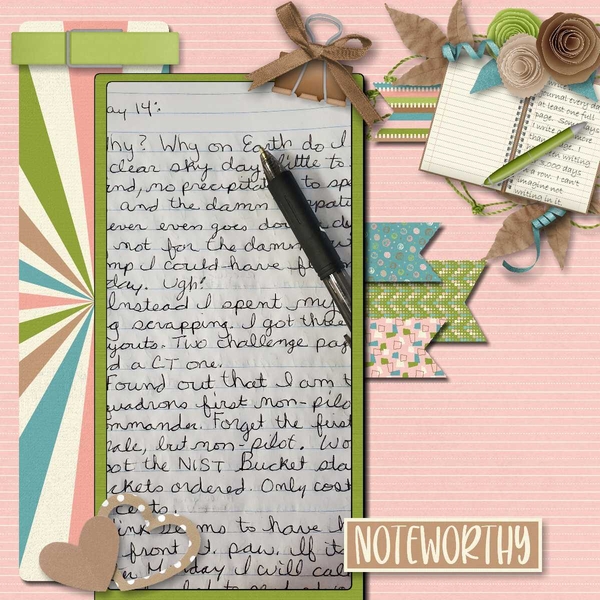 ay 14:
hy? Why on Earth do I
clear sky day, little to
nd, no precipitation to sp
and the damn
ever even goes down
not for the damn
mp I could have
day. Ugh?
Instead I spent my
g scrapping. I got three
youts. Two challenge pag
d a CT one.
Found out that I am t
uadrons first non-pilo
mmander. Forget the first
ale, but non-pilot. Wo
ot the NIST Bucket sta
ckets ordered. Only cost
cents.
ink seems to have h
front paw. If it
day I will cal
journal every day
at least one full
page. Some days
I write
than I
been writing
000 days
a row. I can't
imagine not
writing in it.
NOTEWORTHY